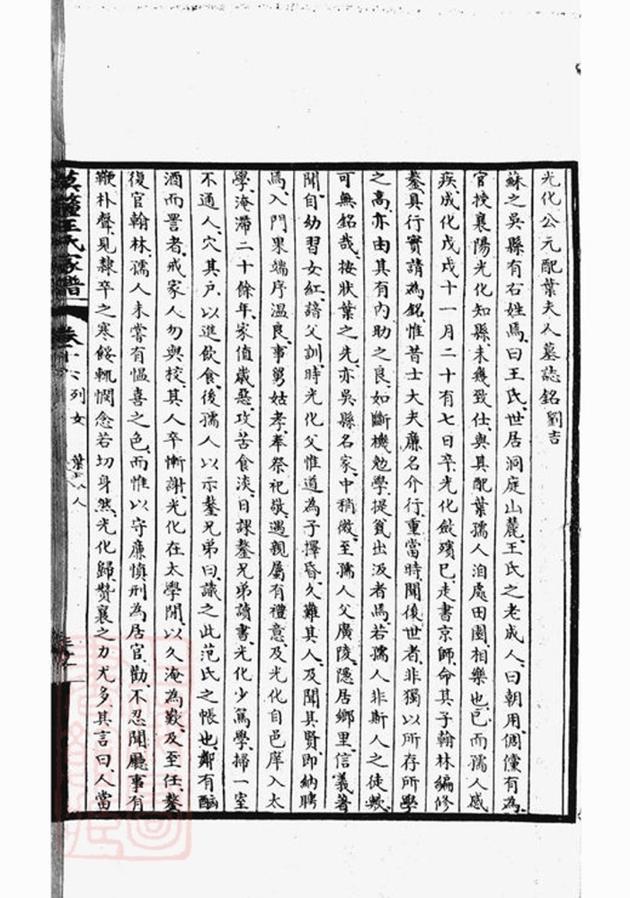 光化公元配葉夫人墓誌銘 劉吉
蘇之吳縣有右姓焉曰王氏世居洞庭山麓王氏之老成人曰朝用倜儻有為
官授襄陽光化知縣未幾致仕與其配葉孺人洎處田園相樂也已而孺人感
疾成化戊戌十一月二十有七日卒光化斂殯已走書京師命其子翰林編修
鏊具行實請為銘惟昔士大夫廉名介行重當時聞後世者非獨以所存所學
之高亦由其有內助之良如斷機勉學提瓮出汲者焉若孺人非斯人之徒歟
可無銘哉按狀葉之先亦吳縣名家中稍微至孺人父廣陵隱居鄉里信義著
聞自幼習女紅諳父訓時光化父惟道為子擇昏久難其人及聞其賢即納聘
焉入門果端序溫良事舅姑孝奉祭祀敬遇親屬有禮意及光化自邑庠入太
學淹滯二十餘年家值歲惡攻苦食淡日課鏊兄弟讀書光化少篤學掃一室
不通人穴其戶以進飲食後孺人以示鏊兄弟曰識之此范氏之帳也鄰有酗
酒而詈者戒家人勿與校其人卒慚謝光化在太學閒以久淹為歎及至任鏊
復官翰林孺人未嘗有慍喜之色而惟以守廉慎刑為居官勸不忍聞廳事有
鞭朴聲見隸卒之寒餒輒憫念若切身然光化歸贊襄之力尤多其言曰人當
莫釐王氏家譜 卷十六 列女 葉夫人